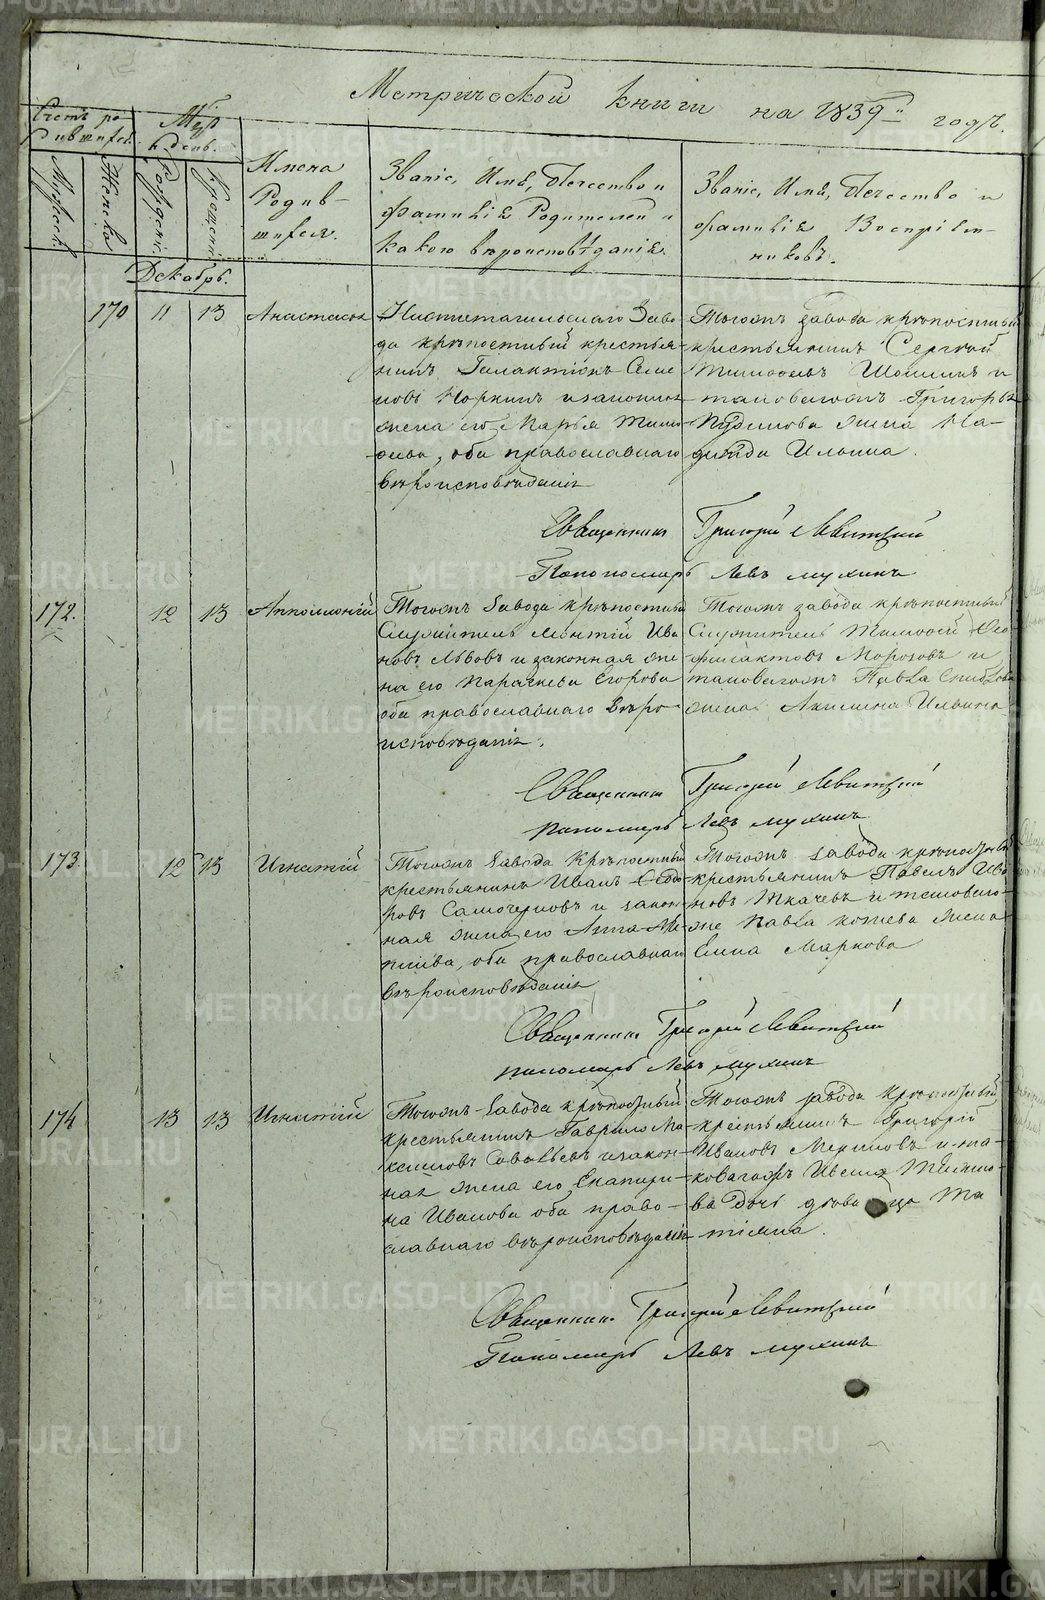 Метрической книги на 1839й годъ.
Счетъ родившихся.
Мужеска
Женска
Мѣсяцъ и день.
Рожденія
Крещенія
Имена Родив-
шихся.
Званіе, Имя, Отечество и
фамилія Родителей и
какого вѣроисповѣданія.
Званіе, Имя, Отечество и
фамилія Воспріем-
никовъ.
Декабрь.
170 11 13 Анастасія
Нижнетагильскаго Заво-
да крѣпостный крестья-
нинъ Галактіонъ Семе
новъ Норкинъ и законная
жена его Марья Тимо-
феева, оба православнаго
вѣроисповѣданія
Тогожъ завода крѣпостный
крестьянинъ Сергѣй
Тимофеевъ Шошинъ и
таковагожъ Григорья
жена На-
дежда Ильина.
Священникъ Григорій Левитскій
Пономарь Левъ Мухинъ
172. 12 13 Апполоній
Тогожъ завода крѣпостный
Служитель Леонтій Ива
новъ Львовъ и законная же
на его Параскева Егорова
оба православнаго вѣро-
исповѣданія.
Тогожъ завода крѣпостный
Служитель Тимофей Фео-
филактовъ Морозовъ и
таковагожъ Павла
жена Акилина Ильина
Священникъ Григорій Левитскій
пономарь Левъ Мухинъ
173. 12 13 Игнатій
Тогожъ завода Крѣпостный
крестьянинъ Иванъ Федо
ровъ Самочерновъ и закон-
ная жена его Анна
оба православнаго
вѣроисповѣданія
Тогожъ завода крѣпостный
крестьянинъ Павелъ Ива
новъ Ткачевъ и таковаго-
же Павла жена
Елена Маркова
Священникъ Григорій Левитскій
пономарь Левъ Мухинъ
174 13 13 Игнатій
Тогожъ завода крѣпостный
крестьянинъ Гаврило Ма-
ксимовъ Савельевъ и закон-
ная жена его Екатери-
на Иванова оба право-
славнаго вѣроисповѣданія
Тогожъ завода Крѣпостный
крестьянинъ Григорій
Ивановъ и та-
ковагожъ Ивана
ва дочь дѣвица Та
тіяна.
Священникъ Григорій Левитскій
Пономарь Левъ Мухинъ
METRIKI.GASO-URAL.RU